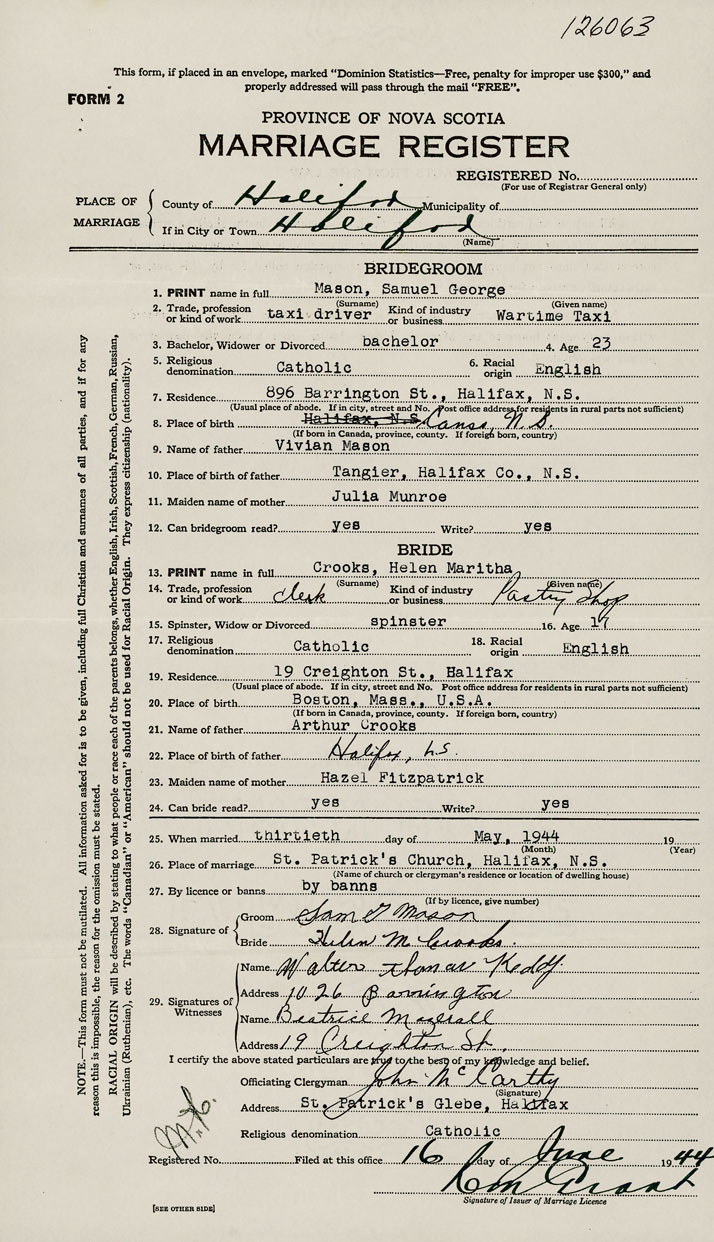 126063
This form, if placed in an envelope, marked "Dominion Statistics—Free, penalty for improper use $300," and
properly addressed will pass through the mail "FREE".
FORM 2
PROVINCE OF NOVA SCOTIA
MARRIAGE REGISTER
REGISTERED No.
(For use of Registrar General only)
PLACE OF MARRIAGE
County of Halifax Municipality of
If in City or Town Halifax
(Name)
BRIDEGROOM
1. PRINT name in full Mason, Samuel George
(Surname) (Given name)
2. Trade, profession or kind of work taxi driver Kind of industry or business Wartime Taxi
3. Bachelor, Widower or Divorced bachelor 4. Age 23
5. Religious denomination Catholic 6. Racial origin English
7. Residence 896 Barrington St., Halifax, N.S.
(Usual place of abode. If in city, street and No. Post office address for residents in rural parts not sufficient)
8. Place of birth Halifax, N.S. Canso, N.S.
(If born in Canada, province, county. If foreign born, country)
9. Name of father Vivian Mason
10. Place of birth of father Tangier, Halifax Co., N.S.
11. Maiden name of mother Julia Munroe
12. Can bridegroom read? yes Write? yes
BRIDE
13. PRINT name in full Crooks, Helen Maritha
(Surname) (Given name)
14. Trade, profession or kind of work clerk Kind of industry or business Pastry Shop
15. Spinster, Widow or Divorced spinster 16. Age 17
17. Religious denomination Catholic 18. Racial origin English
19. Residence 19 Creighton St., Halifax
(Usual place of abode. If in city, street and No. Post office address for residents in rural parts not sufficient)
20. Place of birth Boston, Mass., U.S.A.
(If born in Canada, province, county. If foreign born, country)
21. Name of father Arthur Crooks
22. Place of birth of father Halifax, N.S.
23. Maiden name of mother Hazel Fitzpatrick
24. Can bride read? yes Write? yes
25. When married thirtieth day of May, 1944 19
(Month) (Year)
26. Place of marriage St. Patrick's Church, Halifax, N.S.
(Name of church or clergyman's residence or location of dwelling house)
27. By licence or banns by banns
(If by licence, give number)
28. Signature of
Groom Sam G Mason
Bride Helen M Crooks.
29. Signatures of Witnesses
Name Walter Thomas Keddy
Address 1026 Barrington
Name Beatrice
Address 19 Creighton St.
I certify the above stated particulars are true to the best of my knowledge and belief.
Officiating Clergyman John McCarthy
(Signature)
Address St. Patrick's Glebe, Halifax
Religious denomination Catholic
Registered No. Filed at this office 16 day of June 1944
Signature of Issuer of Marriage Licence
[SEE OTHER SIDE]
NOTE.—This form must not be mutilated. All information asked for is to be given, including full Christian and surnames of all parties, and if for any
reason this is impossible, the reason for the omission must be stated.
RACIAL ORIGIN will be described by stating to what people or race each of the parents belongs, whether English, Irish, Scottish, French, German, Russian,
Ukrainian (Ruthenian), etc. The words "Canadian" or "American" should not be used for Racial Origin. They express citizenship (nationality).